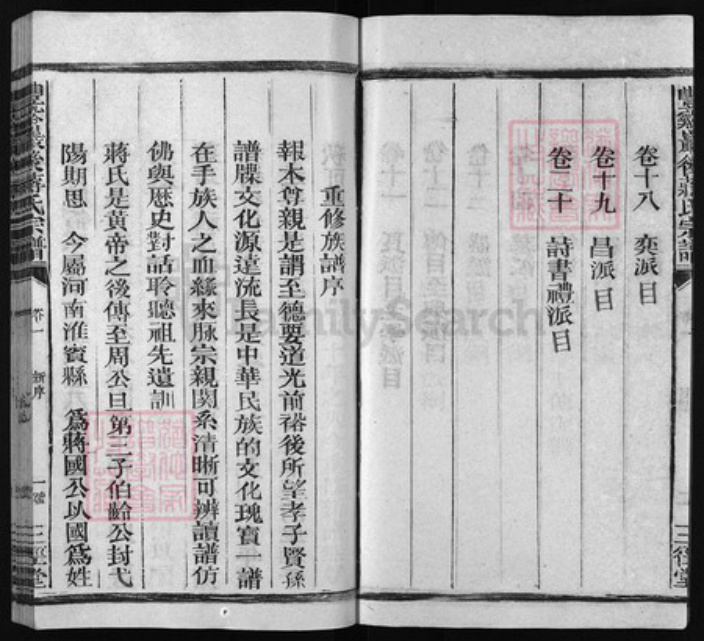 卷十八 奕派目
卷十九 昌派目
卷二十 詩書禮派目
三徑堂
重修族譜序
報本尊親是謂至德要道光前裕後所望孝子賢孫
譜牒文化源遠流長是中華民族的文化瑰寶一譜
在手族人之血緣來脉宗親関系清晰可辨讀譜仿
佛與歷史對話聆聽祖先遺訓
蔣氏是黃帝之後傳至周公旦第三子伯齡公封弋
陽期思 今屬河南淮賓縣 為蔣國公以國為姓
卷一 新序 一 三徑堂
FamilySearch